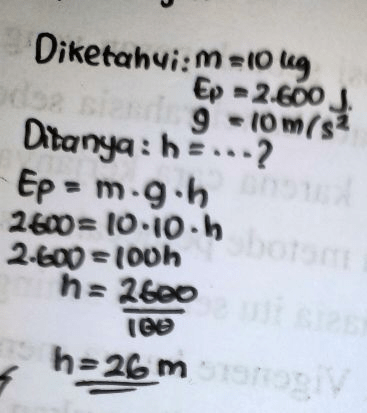 Diketahui: m = 10 kg
Ep = 2.600 J.
g = 10 m/s²
Ditanya: h = ...?
Ep = m.g.h
2.600 = 10.10.h
2.600 = 100h
h = 2600
100
h = 26 m